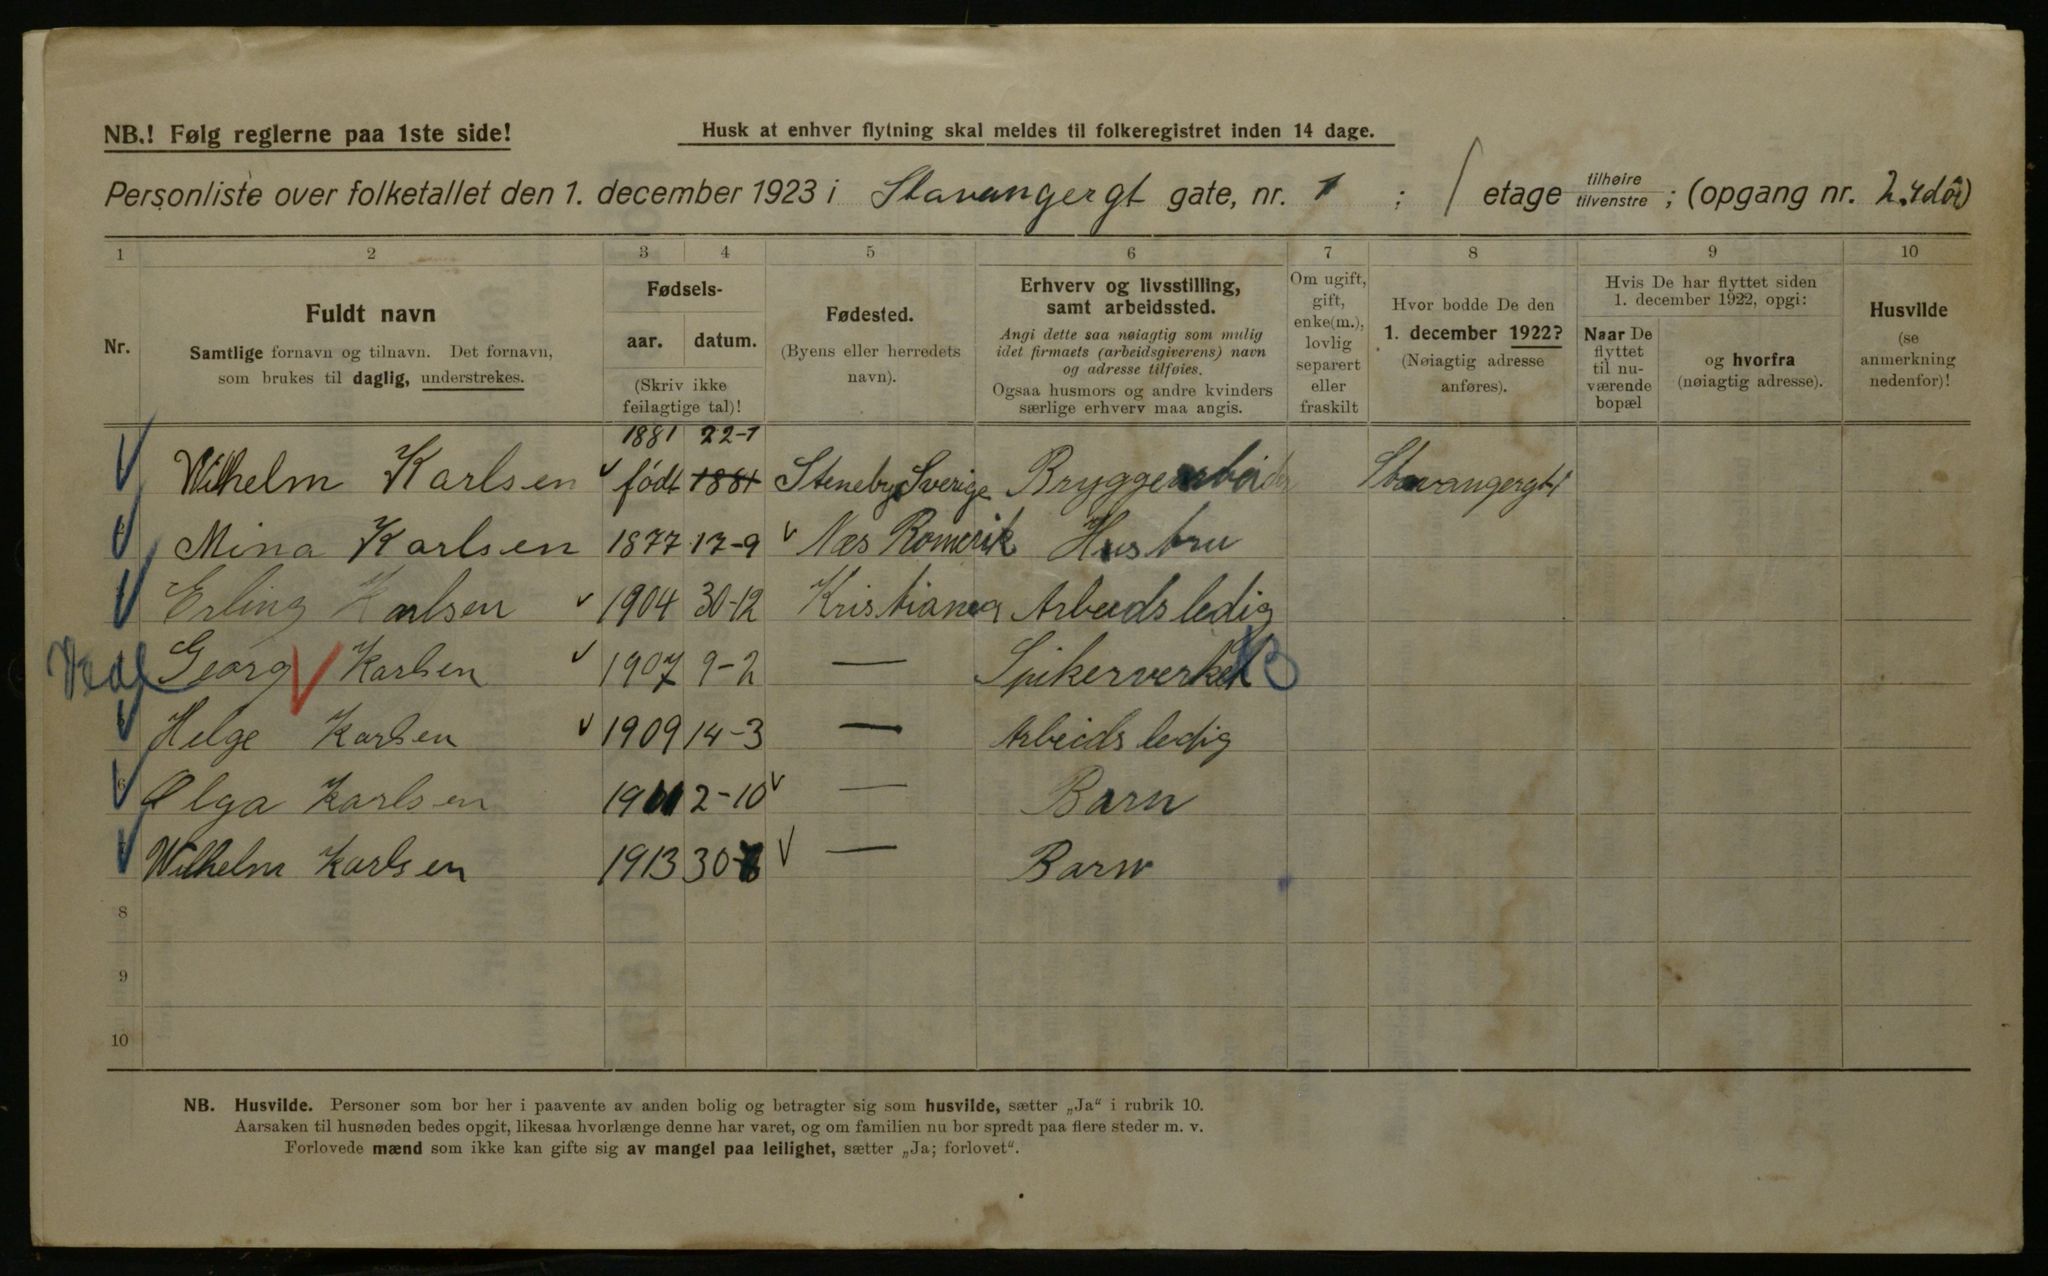 NB.! Følg reglerne paa 1ste side!
Husk at enhver flytning skal meldes til folkeregistret inden 14 dage.
Personliste over folketallet den 1. december 1923 i Stavangergt gate, nr. 1 ; 1 etage tilhøire tilvenstre ; (opgang nr. 2.
1 2 3 4 5 6 7 8 9 10
Nr.
Fuldt navn
Samtlige fornavn og tilnavn. Det fornavn,
som brukes til daglig, understrekes.
Fødsels-
aar. datum.
(Skriv ikke
feilagtige tal)!
Fødested.
(Byens eller herredets
navn).
Erhverv og livsstilling,
samt arbeidssted.
Angi dette saa nøiagtig som mulig
idet firmaets (arbeidsgiverens) navn
og adresse tilføies.
Ogsaa husmors og andre kvinders
særlige erhverv maa angis.
Om ugift,
gift,
enke(m.),
lovlig
separert
eller
fraskilt
Hvor bodde De den
1. december 1922?
(Nøiagtig adresse
anføres).
Hvis De har flyttet siden
1. december 1922, opgi:
Naar De
flyttet
til nu-
værende
bopæl
og hvorfra
(nøiagtig adresse).
Husvilde
(se
anmerkning
nedenfor)!
1881 22-1
Wilhelm Karlsen født 1881 Steneby Sverige Bryggearbeider Stavangergt 1
Mina Karlsen 1877 17-9 Næs Romerik Husbru
Erling Karlsen 1904 30-12 Kristiania Arbeidsledig
Georg Karlsen 1907 9-2 — Spikerverket
Helge Karlsen 1909 14-3 — Arbeidsledig
6 Olga Karlsen 1911 2-10 — Barn
Wilhelm Karlsen 1913 30- — Barn
8
9
10
NB. Husvilde. Personer som bor her i paavente av anden bolig og betragter sig som husvilde, sætter „Ja“ i rubrik 10.
Aarsaken til husnøden bedes opgit, likesaa hvorlænge denne har varet, og om familien nu bor spredt paa flere steder m. v.
Forlovede mænd som ikke kan gifte sig av mangel paa leilighet, sætter „Ja; forlovet“.